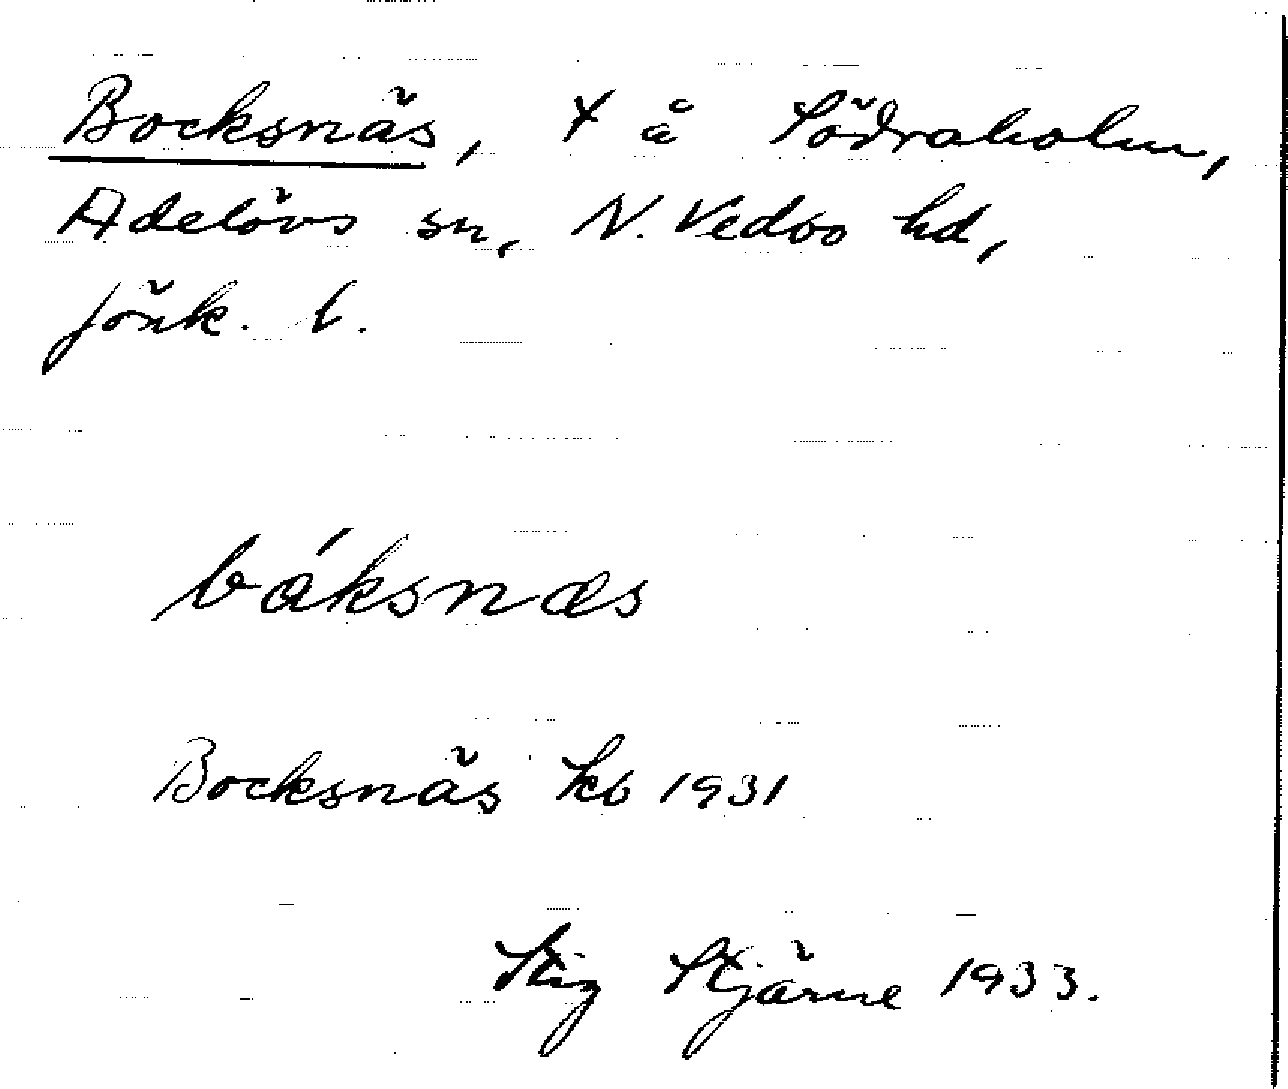 Bocksnäs, t å Södraholm,
Adelövs sn, N. Vedbo hd,
Jönk. l.
báksnæs
Bocksnäs kb 1931
Stig Stjärne 1933.